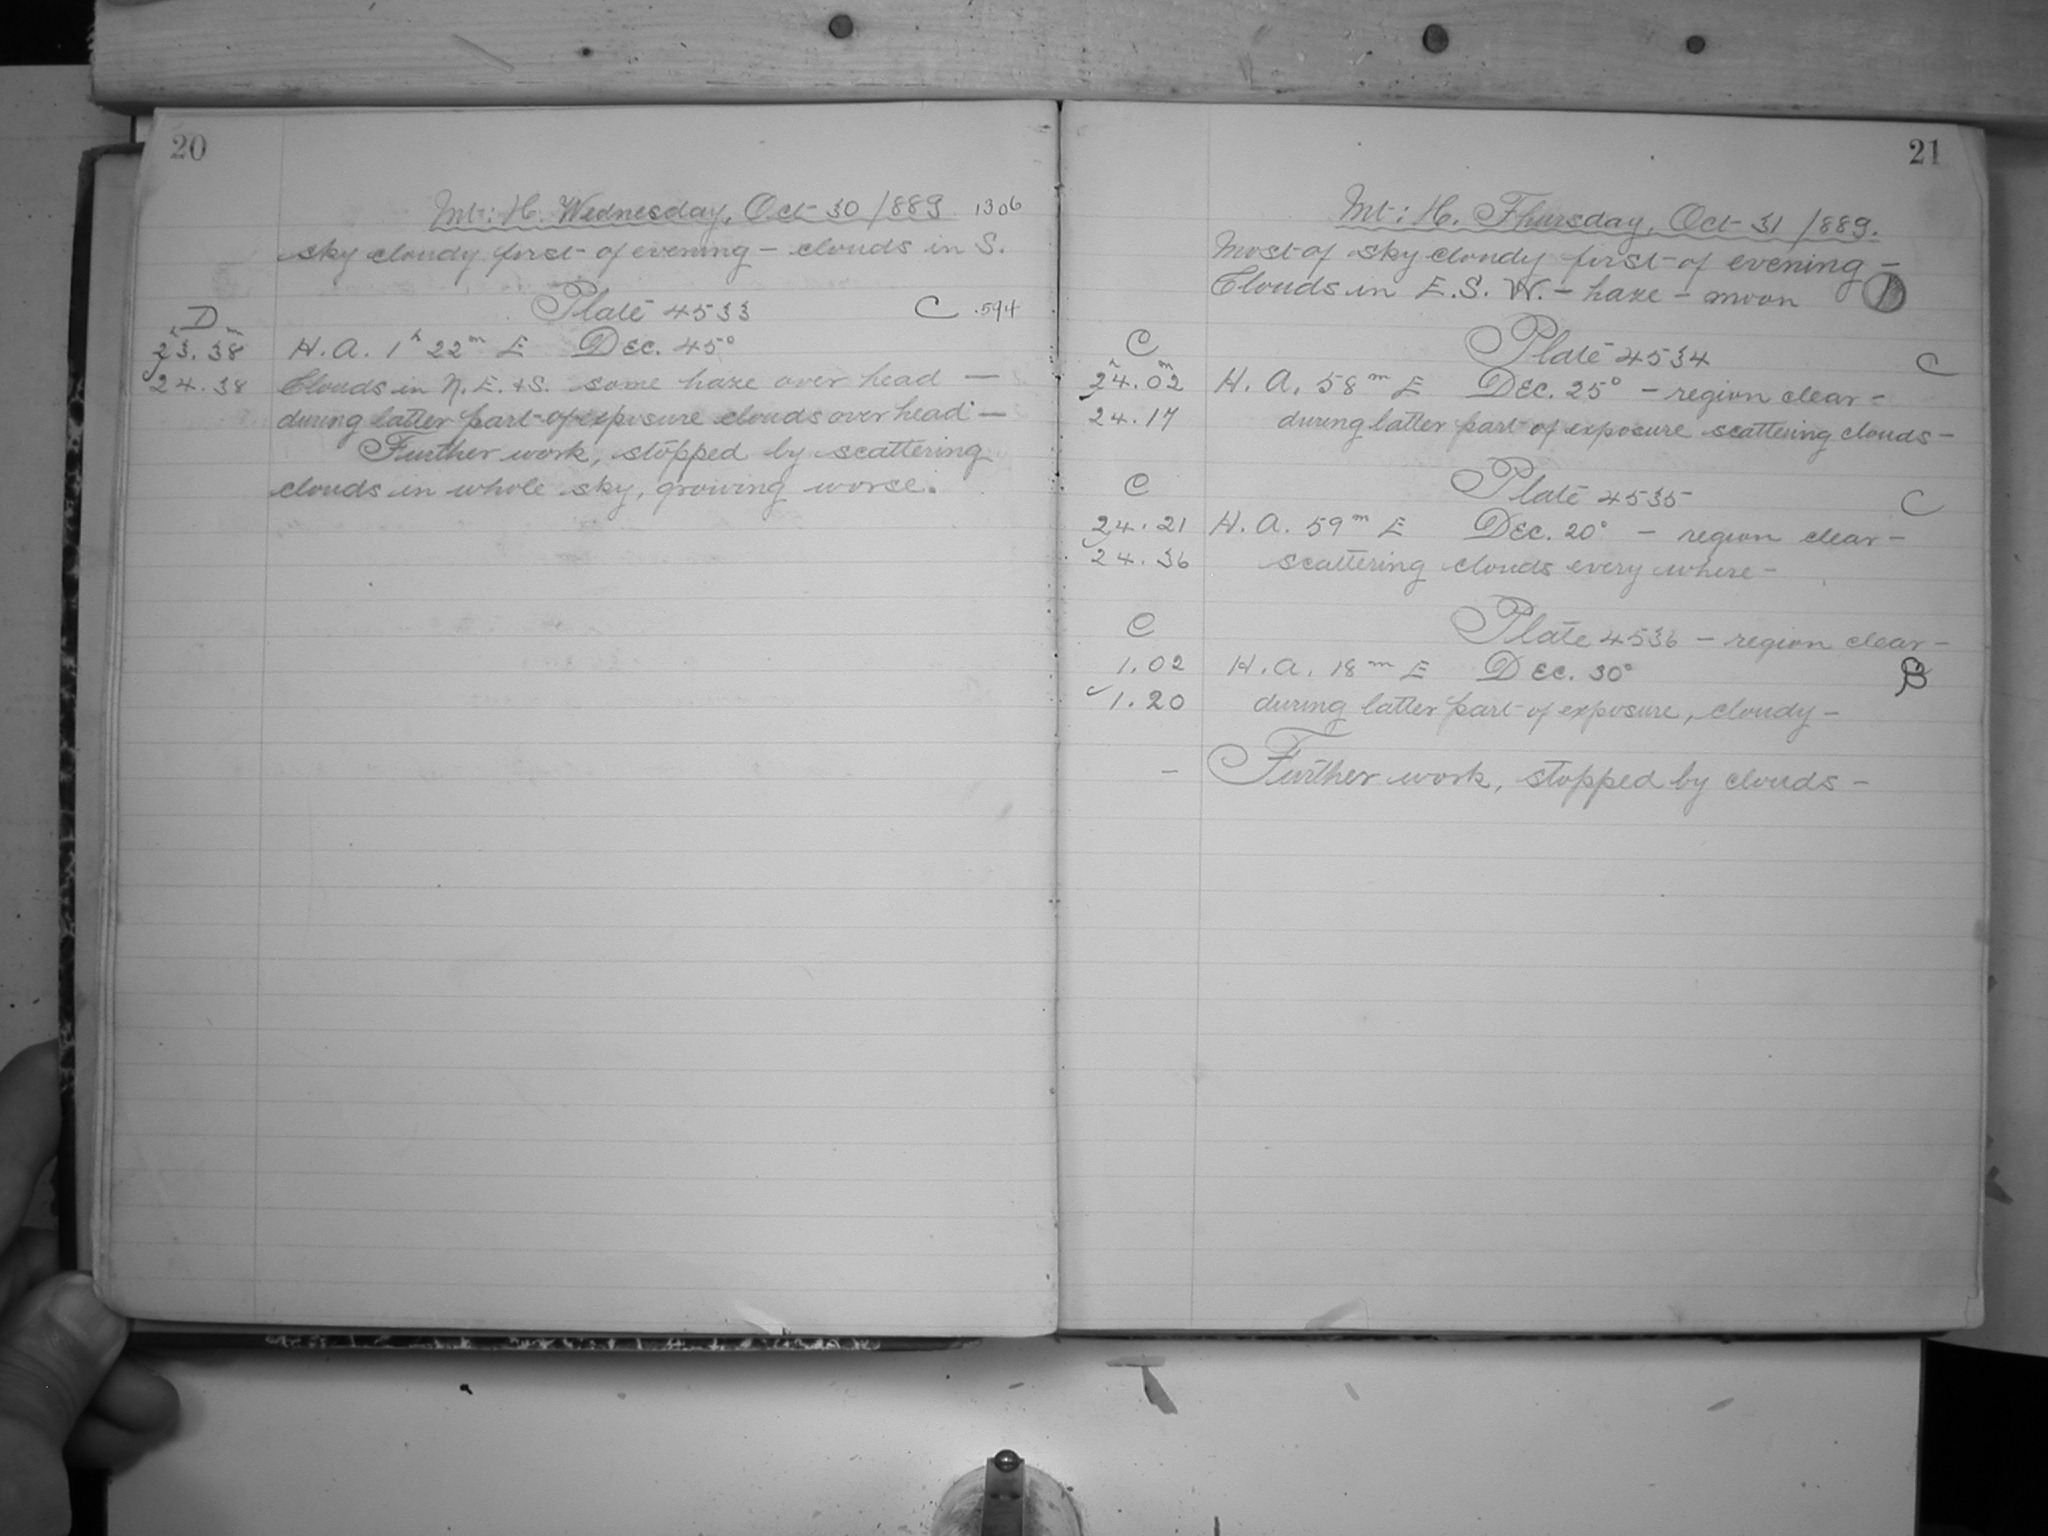 20
Mt: H. Wednesday, Oct 30/889 1306
sky cloudy first of evening - clouds in S.
Plate 4533 C .594
D
h m
23.38 H.A. 1h 22m E Dec. 45°
24.38 Clouds in N.E. & S. some haze over head —
during latter part of exposure clouds over head —
Further work, stopped by scattering
clouds in whole sky, growing worse.
21
Mt: H. Thursday, Oct 31/889.
Most of sky cloudy first of evening -
Clouds in E.S.W. - haze - moon
C Plate 4534 C
h m
24.02 H.A. 58m E Dec. 25° - region clear -
24.17 during latter part of exposure scattering clouds -
C Plate 4535 C
24.21 H.A. 59m E Dec. 20° - region clear -
24.36 scattering clouds every where -
C Plate 4536 - region clear -
1.02 H.A. 18m E Dec. 30° B
1.20 during latter part of exposure, cloudy -
- Further work, stopped by clouds -